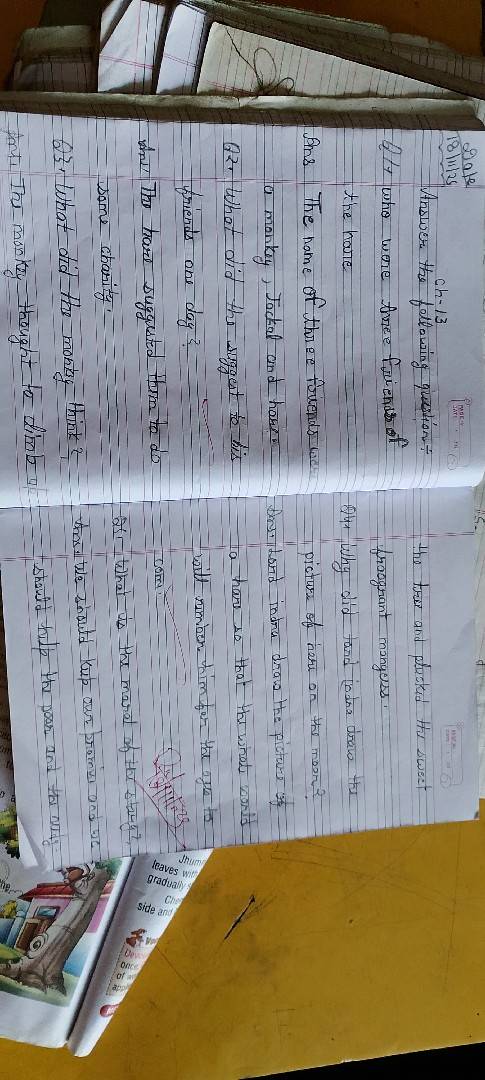 Date
18/11/25
Ch-13
Answer the following question:
Q1. who were three friends of
the hare
Ans The name of three friends
a monkey, Jackal and hare
Q2. What did the suggest to his
friends one day?
Ans: The hare suggested them to do
some charity.
Q3. What did the monkey think?
Ans: The monkey thought to climb
the tree and plucked the sweet
fragrant
Q4. Why did lord indra draw the
picture of on the moon?
Ans: Lord indra draw the picture of
a hare so that the whole world
will him for the age to
com.
Q5. What is the moral of the story?
Ans: We should keep our promise and we
should help the poor and the
Jhum
leaves with
gradually
side and
once
of w